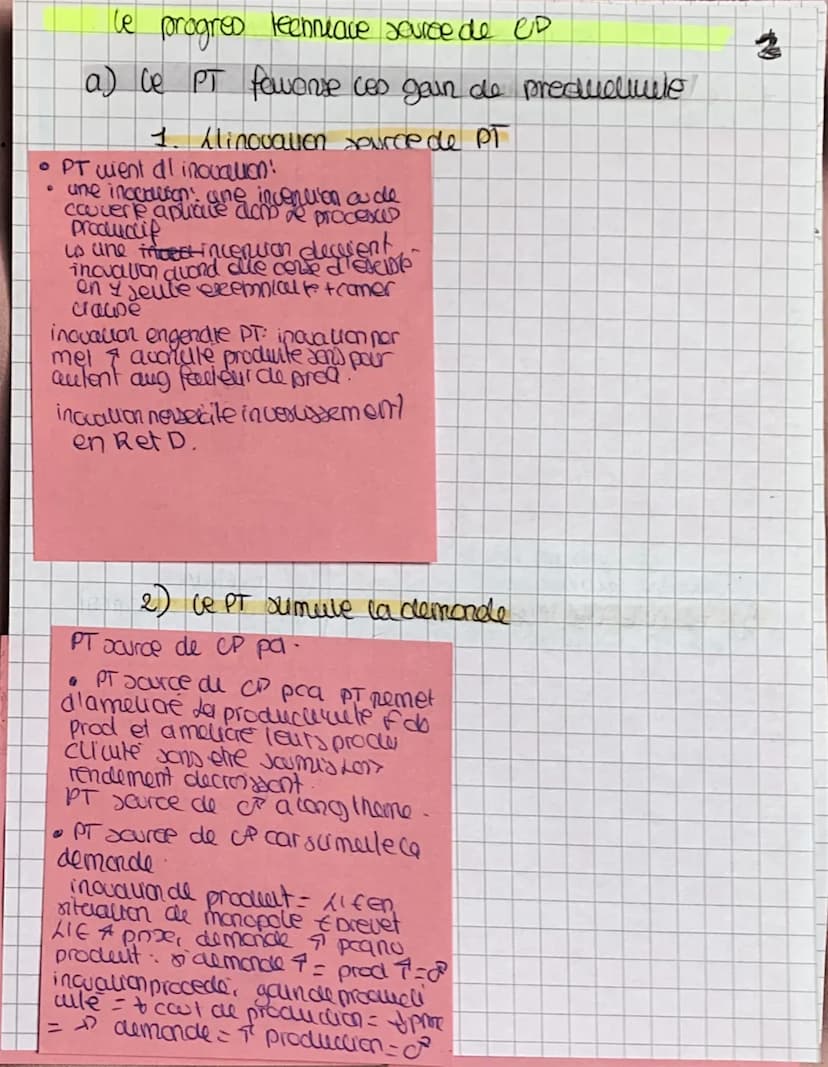 le progres technique source de CP
2
a) le PT favorise les gain de productivité
1. L'inovation source de PT
• PT vient d l'inovation:
• une inovation: une invention ou de
couverte apliqué dans le processus
productif
↳ une invention devient
inovation quand elle cesse d'existe
en 1 seule exemplaire + comer
cialisé
inovation engendre PT: inovation per
met ↑ quantité produite sans pour
autent aug facteur de prod.
inovation nessecite investissement
en R et D.
2) le PT stimule la demande
PT source de CP
• PT source de CP pcq PT permet
d'améliore la productivité f de
prod et améliore leurs produ
ctivité sans etre soumis
rendement decroissant.
PT source de CP a long therme.
• PT source de CP car stimule la
demande.
inovation de produit = en
situation de monopole brevet
↑ prix, demande ↑
produit. demande ↑ = prod ↑ =
inovation procedé, gain de producti
vité = ↓ cout de production = ↓ prix
= ↗ demande = ↑ production =